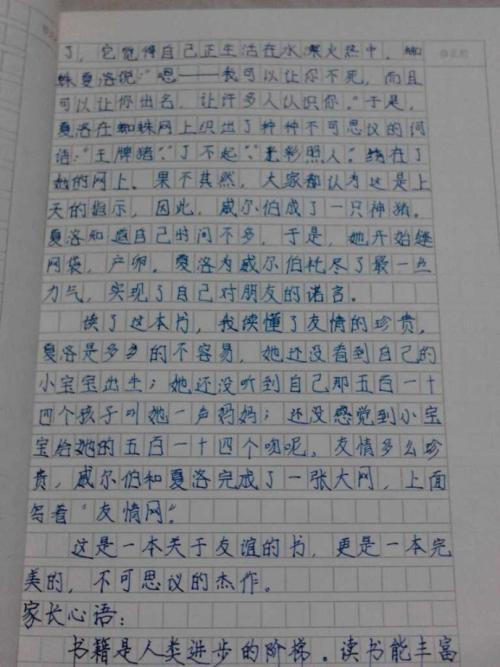 了，它觉得自己正生活在水深火热中。蜘
蛛夏洛说："嗯——我可以让你不死，而且
可以让你出名，让许多人认识你。"于是，
夏洛在蜘蛛网上织出了种种不可思议的词
语："王牌猪"、"了不起"、"光彩照人"。结在了
她的网上。果不其然，大家都认为这是上
天的指示，因此，威尔伯成了一只神猪。
夏洛知道自己时间不多，于是，她开始缝
网袋，产卵。夏洛为威尔伯耗尽了最一丝
力气，实现了自己对朋友的诺言。
读了这本书，我读懂了友情的珍贵。
夏洛是多么的不容易，她还没看到自己的
小宝宝出生；她还没听到自己那五百一十
四个孩子叫她一声妈妈；还没感觉到小宝
宝给她的五百一十四个吻呢。友情多么珍
贵，威尔伯和夏洛完成了一张大网，上面
写着"友情网"。
这是一本关于友谊的书，更是一本完
美的，不可思议的杰作。
家长心语：
书籍是人类进步的阶梯。读书能丰富